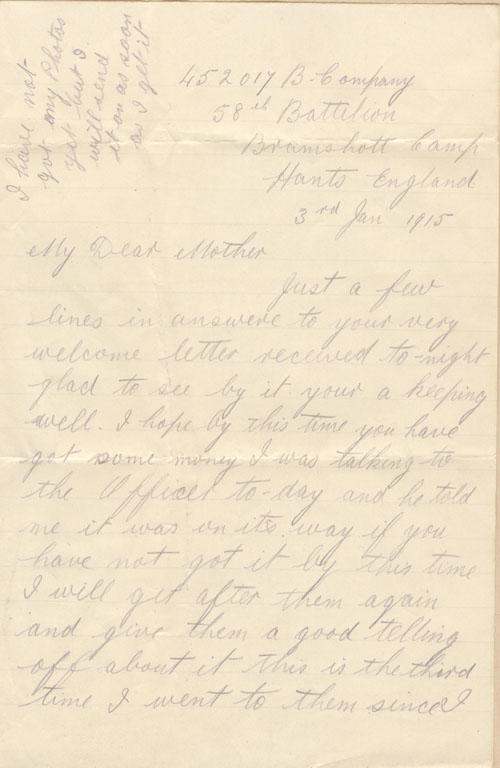 I have not
got any Photos
yet but I
will send
it on as soon
as I get it
452017 B. Company
58th Battilion
Bramshott Camp
Hants England
3rd Jan 1915
My Dear Mother
Just a few
lines in answere to your very
welcome letter received to-night
glad to see by it your a keeping
well. I hope by this time you have
got some money I was talking to
the Officer to-day and he told
me it was on its way if you
have not got it by this time
I will get after them again
and give them a good telling
off about it this is the third
time I went to them since I